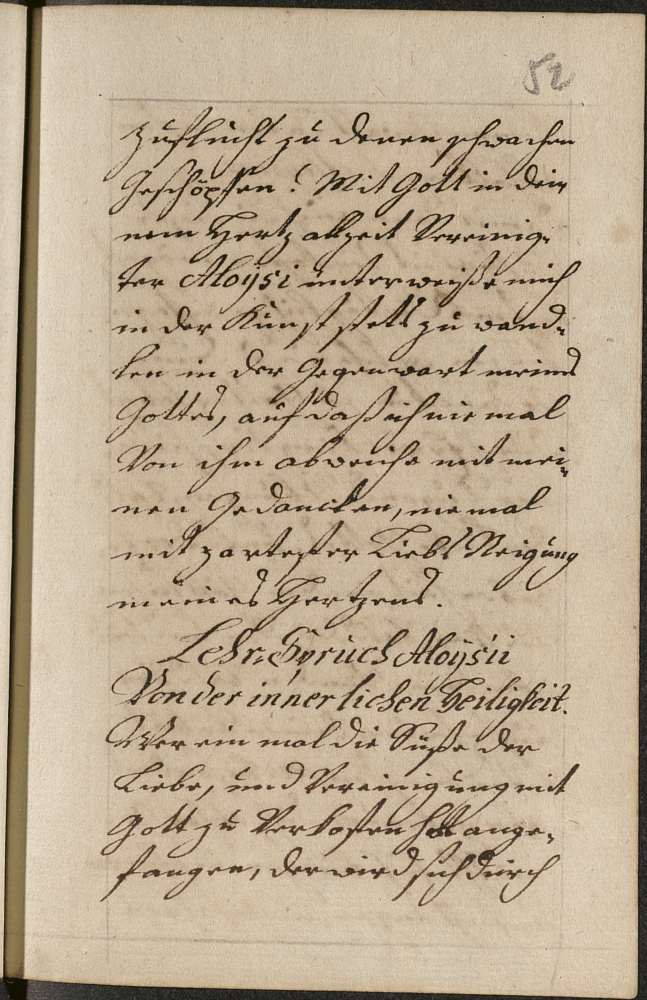 52
Zuflucht zu denen schwachen
Geschöpffen! Mit Gott in dei¬
nem Hertz allzeit Vereinig¬
ter Aloysi unterweiße mich
in der Kunst stets zu wand¬
len in der Gegenwart meines
Gottes, auf daß ich niemal
Von ihm abweiche mit mei¬
nen Gedancken, niemal
mit zartester Liebs Neigung
meines Hertzens.
Lehr-Spruch Aloysii
Von der innerlichen Heiligkeit.
Wer ein mal die Süße der
Liebe, und Vereinigung mit
Gott zu Verkosten hatt ange¬
fangen, der wird sich durch